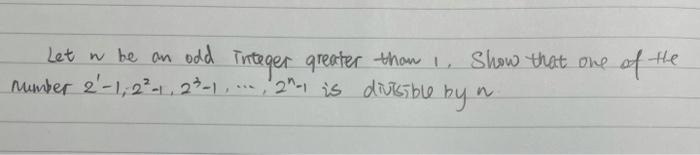 Let n be an odd integer greater than 1. Show that one of the
number 2¹-1, 2²-1, 2³-1, ..., 2ⁿ-1 is divisible by n